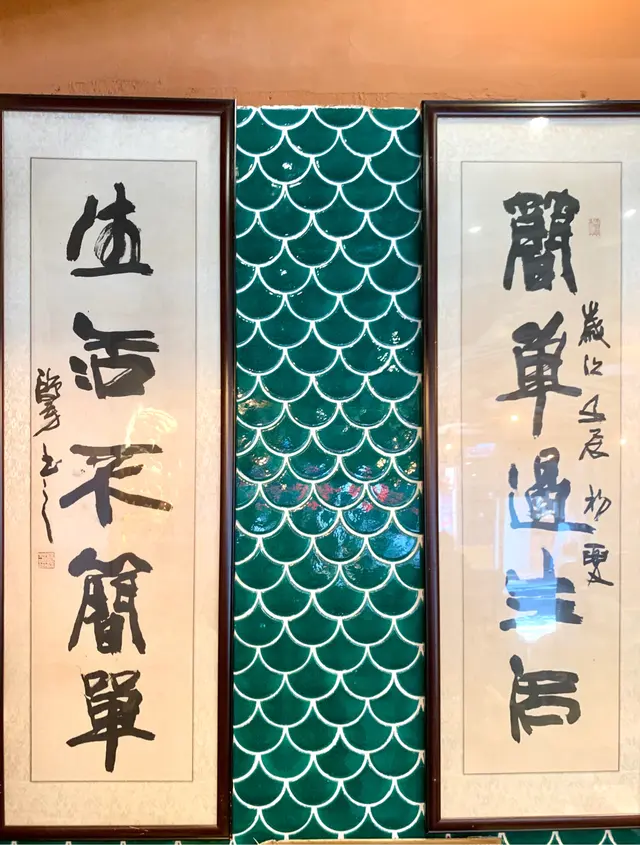 歲次壬辰初夏
簡單過生活
生活不簡單